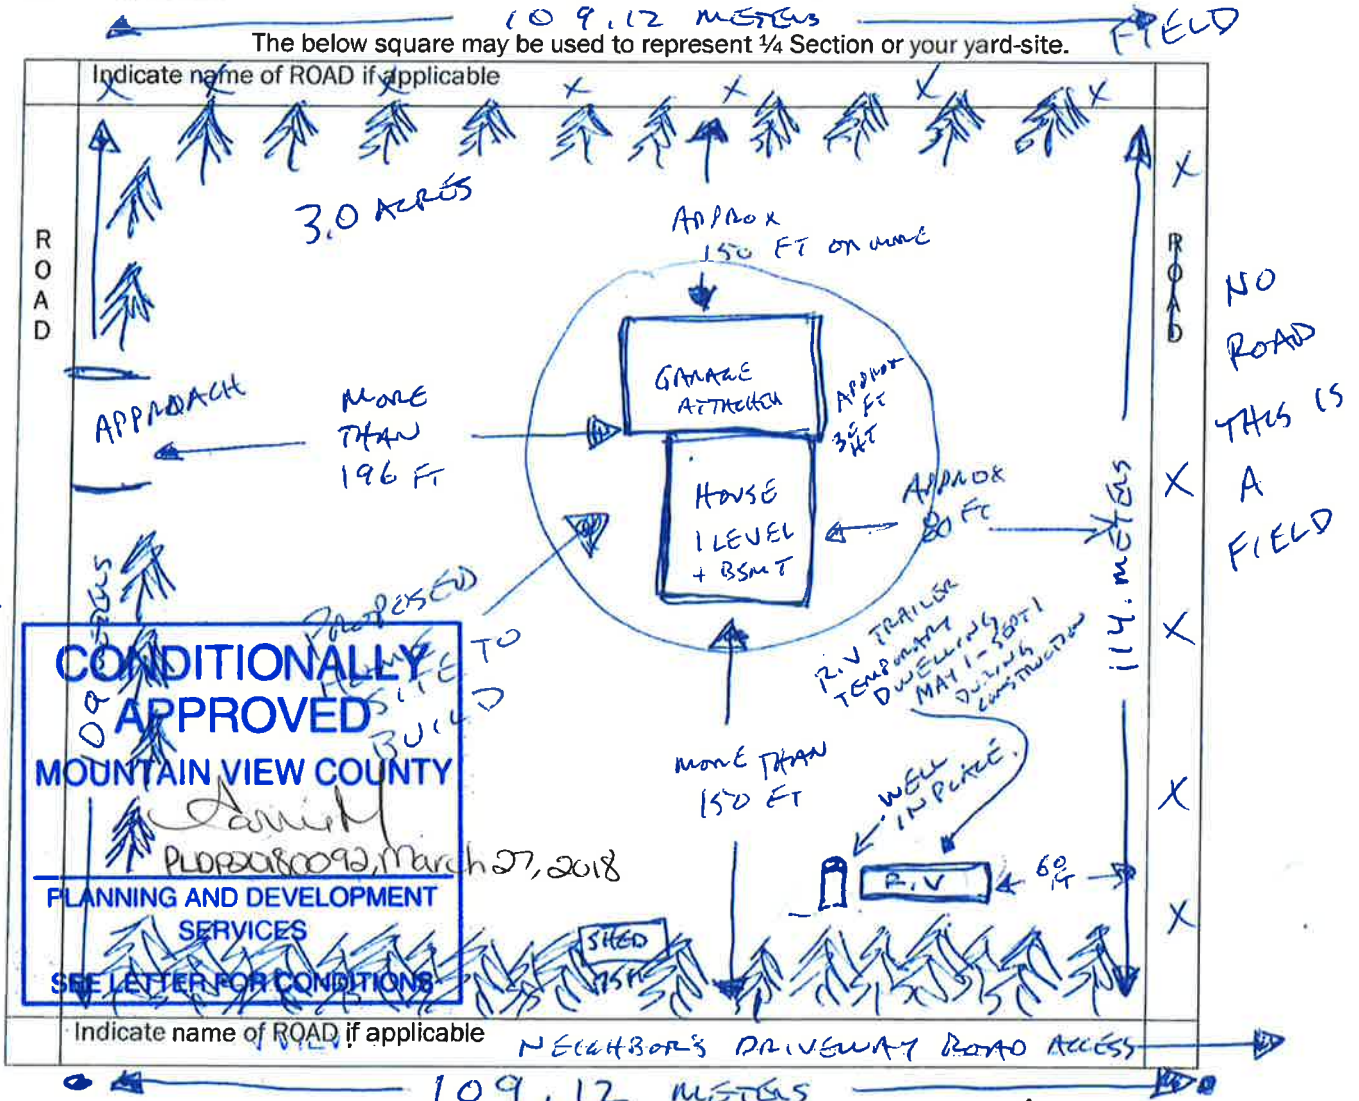 109.12 METERS
FIELD
The below square may be used to represent ¼ Section or your yard-site.
Indicate name of ROAD if applicable
3.0 ACRES
ROAD
ROAD
NO
ROAD
THIS IS
A
FIELD
APPROX
150 FT OR MORE
GARAGE
ATTACHED
APPROX
FT
HT
APPROACH
MORE
THAN
196 FT
HOUSE
1 LEVEL
+ BSMT
APPROX
80 FT
114. METERS
PROPOSED
SITE TO
BUILD
R.V TRAILER
TEMPORARY
DWELLING
MAY 1 - SEPT 1
DURING
CONSTRUCTION
MORE THAN
150 FT
WELL
IN PLACE.
R.V
60
FT
CONDITIONALLY
APPROVED
MOUNTAIN VIEW COUNTY
PLDP20180092, March 27, 2018
PLANNING AND DEVELOPMENT
SERVICES
SEE LETTER FOR CONDITIONS
SHED
75 FT
Indicate name of ROAD if applicable
NEIGHBOR'S DRIVEWAY ROAD ACCESS
109.12 METERS